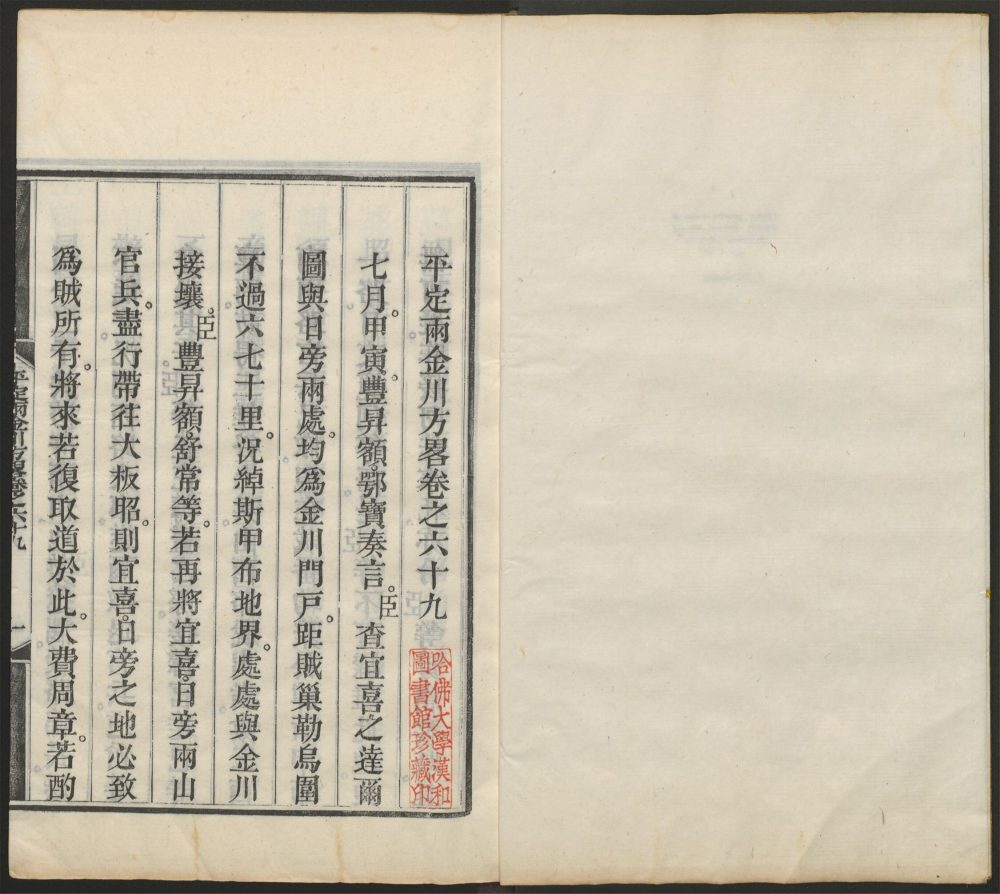 平定兩金川方畧卷之六十九
哈佛大學漢和
圖書館珍藏印
七月。甲寅。豐昇額。鄂寶奏言。臣查宜喜之達爾
圖與日旁兩處。均為金川門戶。距賊巢勒烏圍
不過六七十里。況綽斯甲布地界。處處與金川
接壤。臣豐昇額。舒常等。若再將宜喜。日旁兩山
官兵。盡行帶往大板昭。則宜喜。日旁之地必致
為賊所有。將來若復取道於此。大費周章。若酌
平定兩金川方畧卷之六十九
一